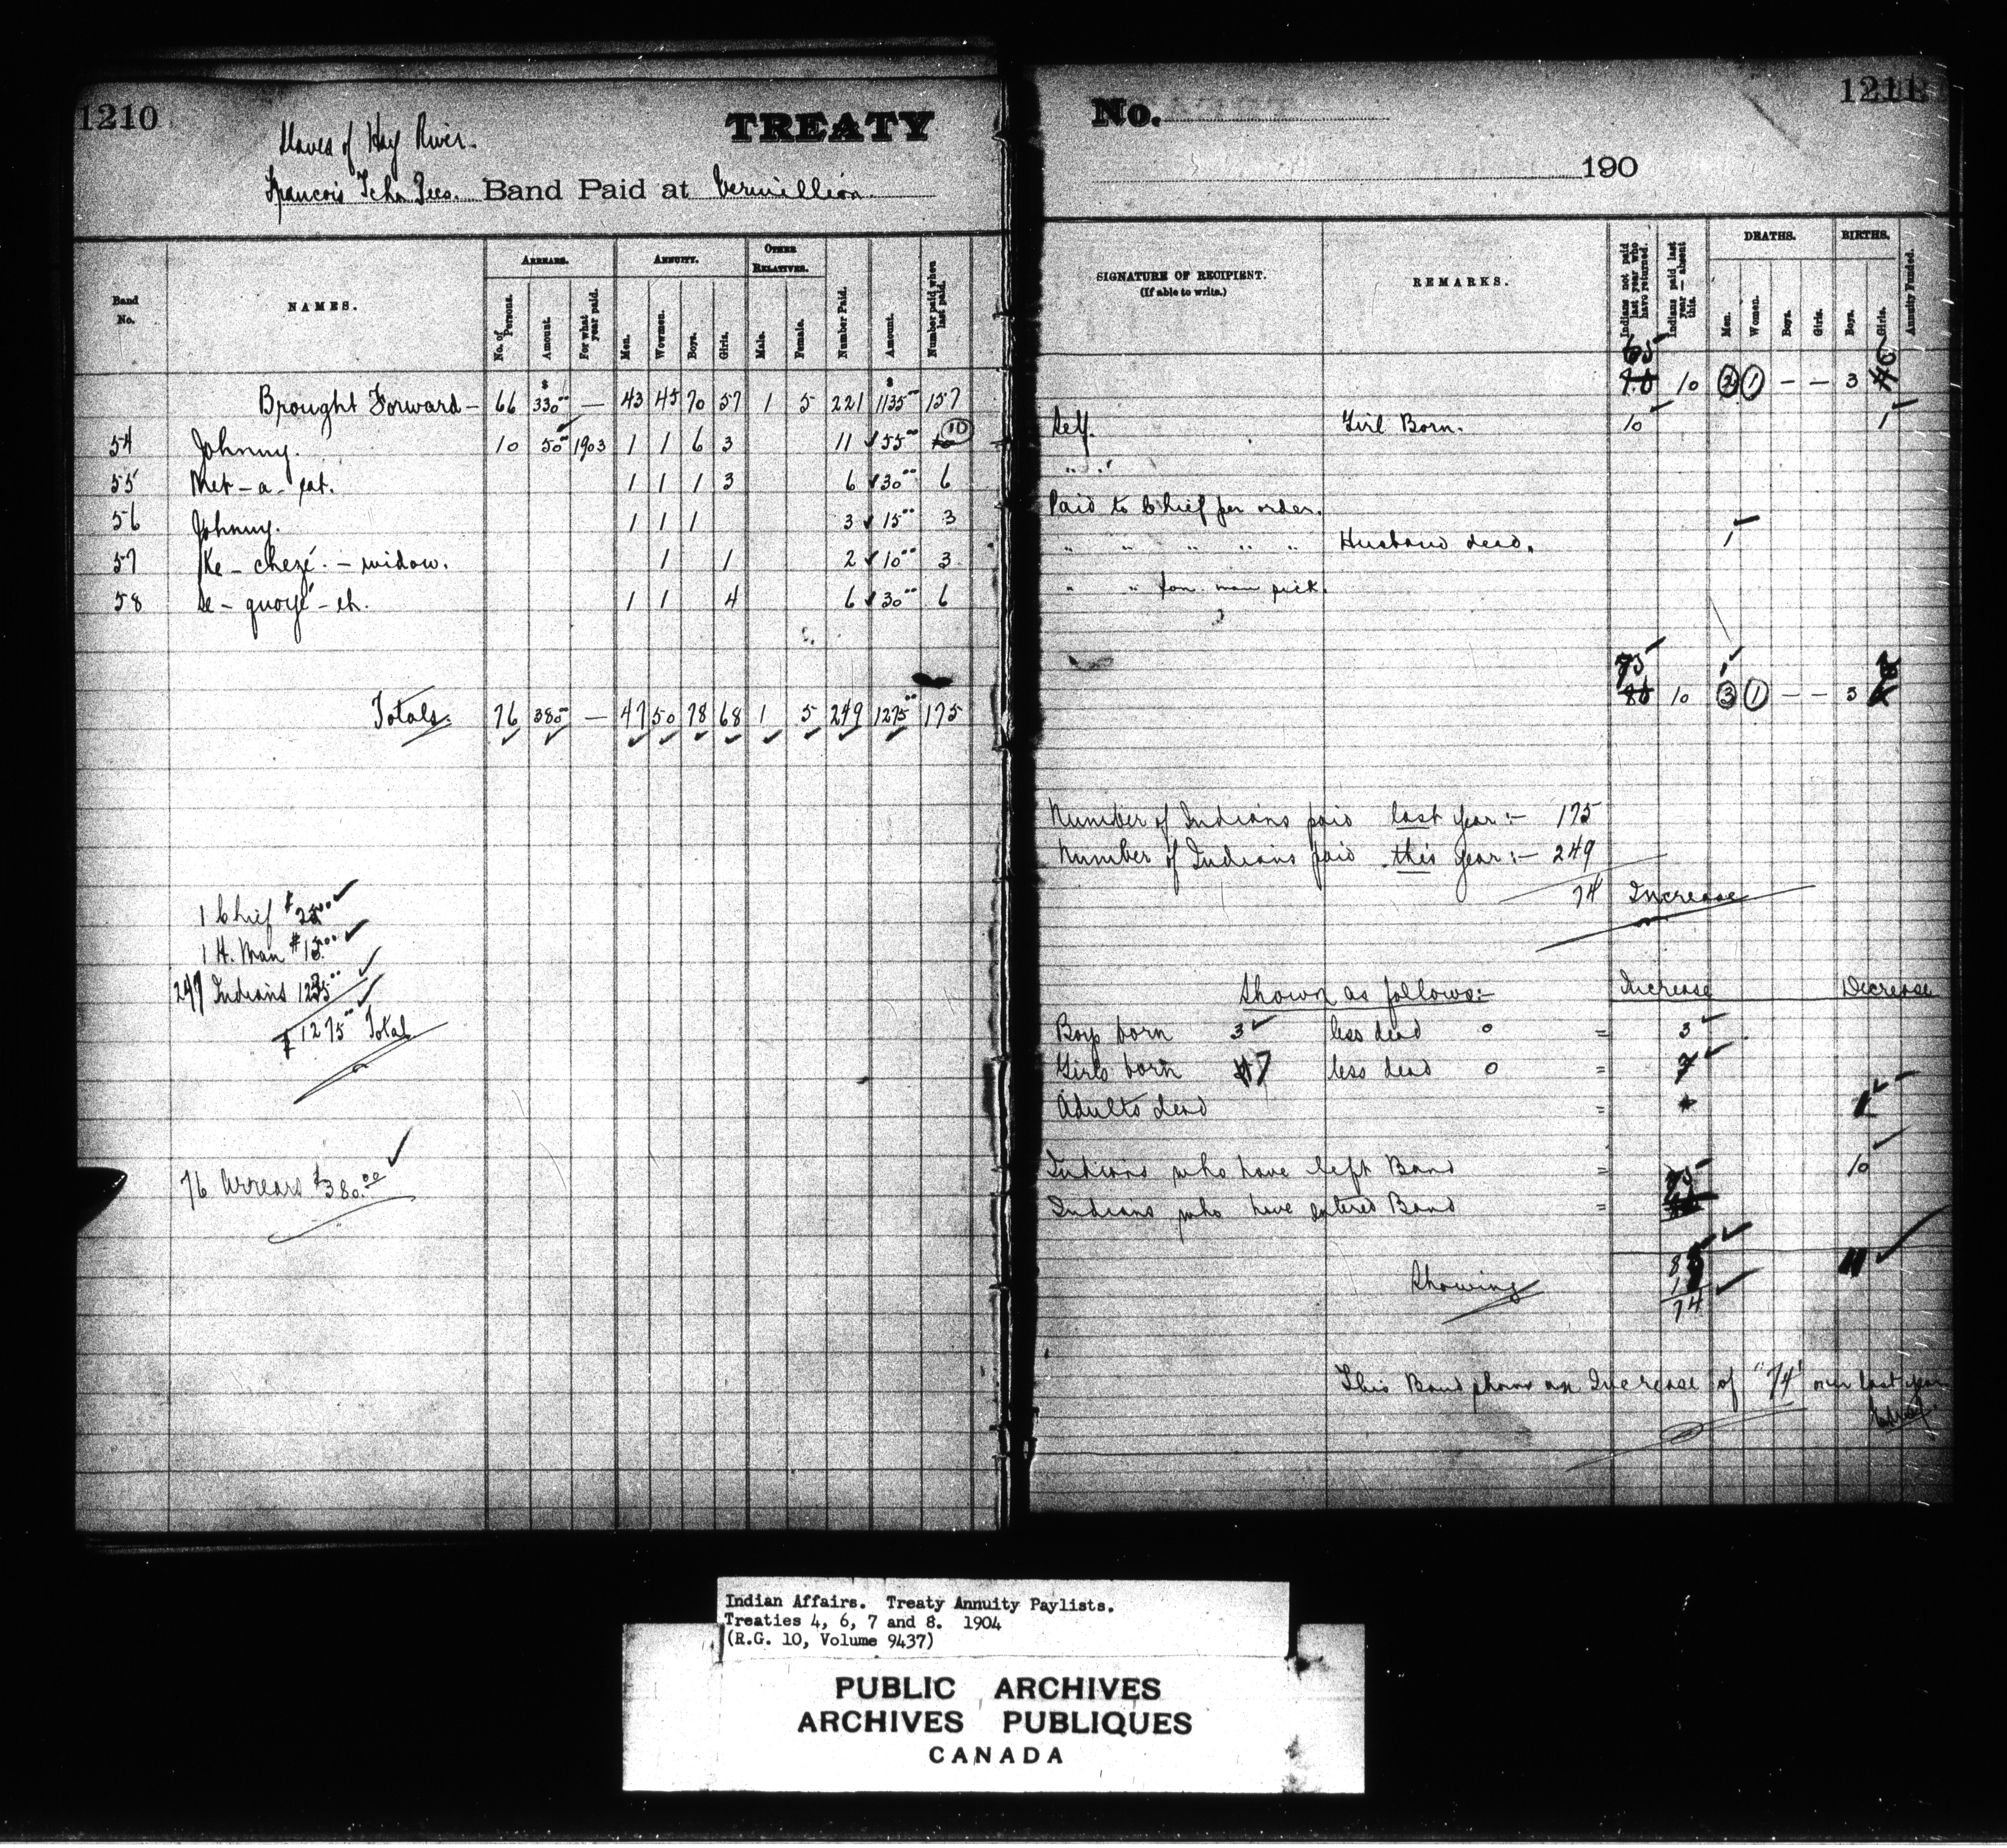 1210
Slaves of Hay River.
TREATY
Francois Tcha Tees. Band Paid at Vermillion.
Band No. NAMES. ARREARS. ANNUITY. OTHER RELATIVES.
No. of Persons. Amount. For what year paid. Men. Women. Boys. Girls. Male. Female. Number Paid. Amount. Number paid when last paid.
Brought Forward — 66 $330.00 — 43 45 70 57 1 5 221 $1135.00 157
54 Johnny. 10 50.00 1903 1 1 6 3 11 55.00 10
55 Met-a-pat. 1 1 1 3 6 30.00 6
56 Johnny. 1 1 1 3 15.00 3
57 Ke-chezé.- widow. 1 1 2 10.00 3
58 Se-quoyé-eh. 1 1 4 6 30.00 6
Totals. 76 380 — 47 50 78 68 1 5 249 1275.00 175
1 Chief $25.00
1 H. Man $15.00
247 Indians 1235.00
$1275.00 Total
76 Arrears $380.00
No.
1211
190
SIGNATURE OF RECIPIENT. (If able to write.) REMARKS. Indians not paid last year who have returned. Indians paid last year—absent this. DEATHS. BIRTHS. Annuity Funded.
Men. Women. Boys. Girls. Boys. Girls.
65 10 2 1 — — 3 6
Self. Girl Born. 10 1
" "
Paid to Chief per order.
" " " " " Husband dead. 1
" "
75 10 3 1 — — 3
Number of Indians paid last year:- 175
Number of Indians paid this year:- 249
74 Increase
Shown as follows:- Increase Decrease
Boys born 3 less dead 0 = 3
Girls born 7 less dead 0 = 7
Adults dead = 1
Indians who have left Band = 10
Indians who have entered Band = 75
85 11
Showing 11
74
This Band shows an Increase of "74" over last year
Indian Affairs. Treaty Annuity Paylists.
Treaties 4, 6, 7 and 8. 1904
(R.G. 10, Volume 9437)
PUBLIC ARCHIVES
ARCHIVES PUBLIQUES
CANADA